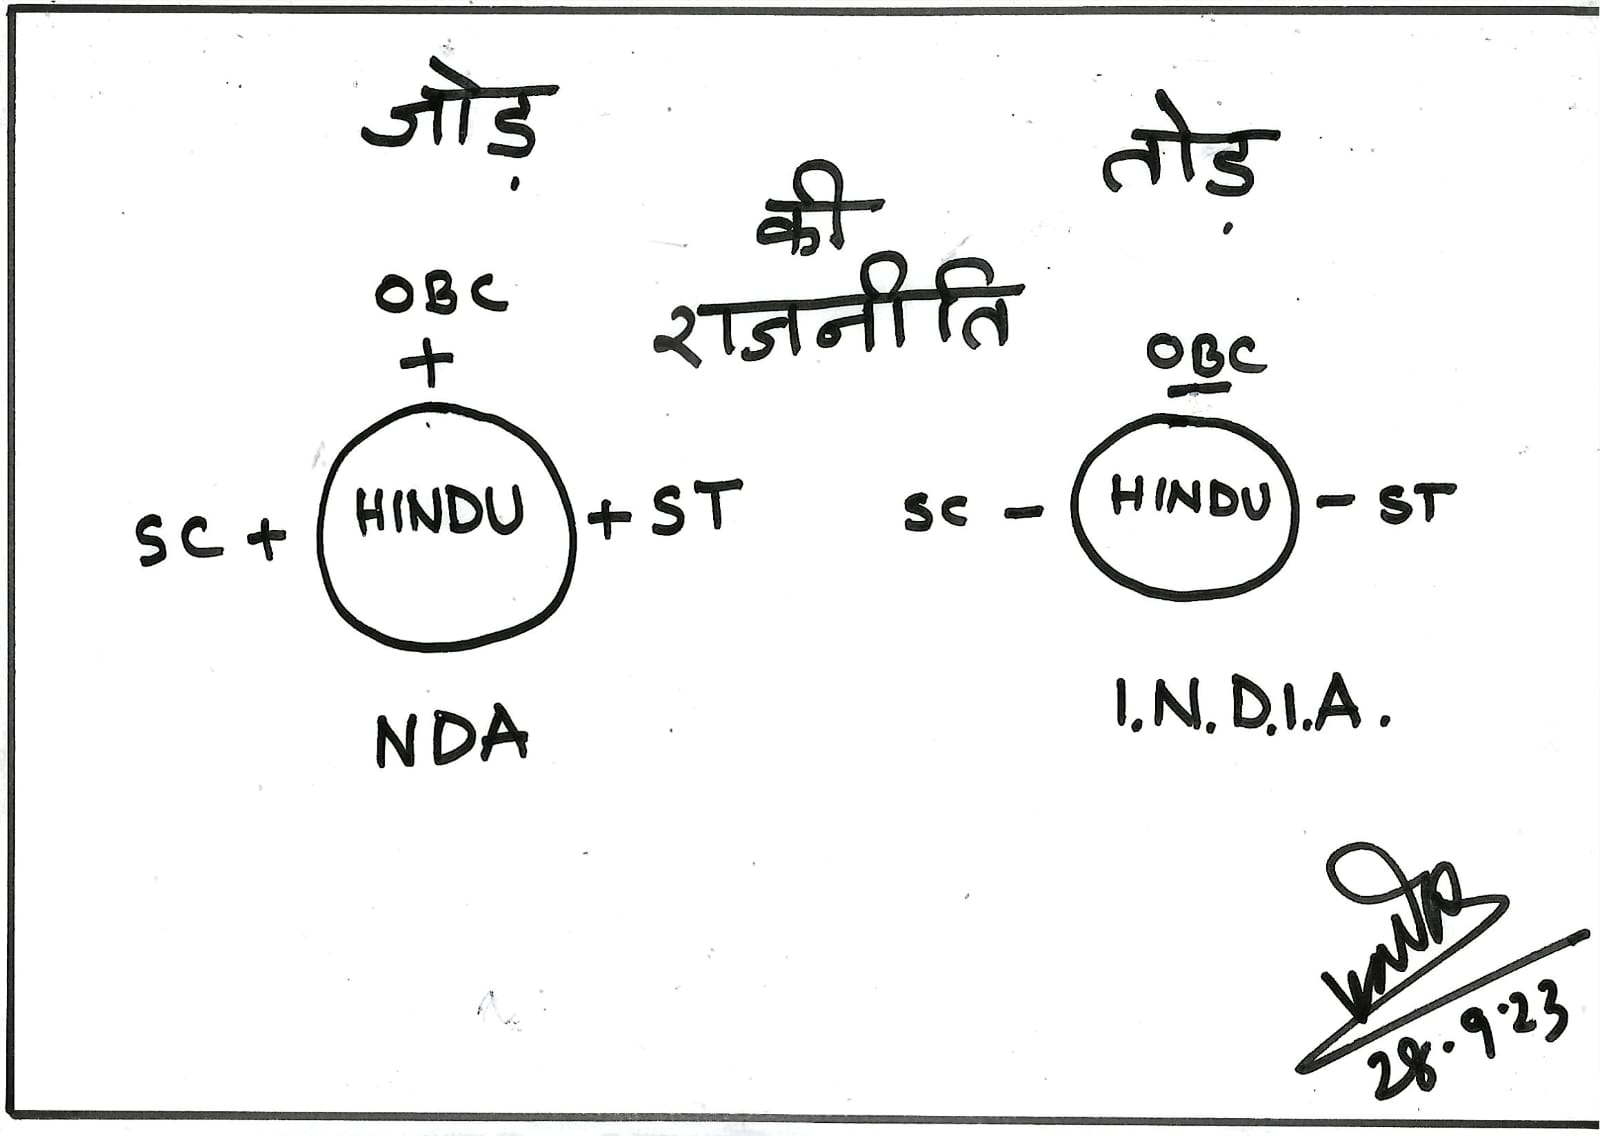 जोड़
तोड़
की
राजनीति
OBC
+
SC + HINDU + ST
NDA
OBC
-
SC - HINDU - ST
I.N.D.I.A.
28.9.23